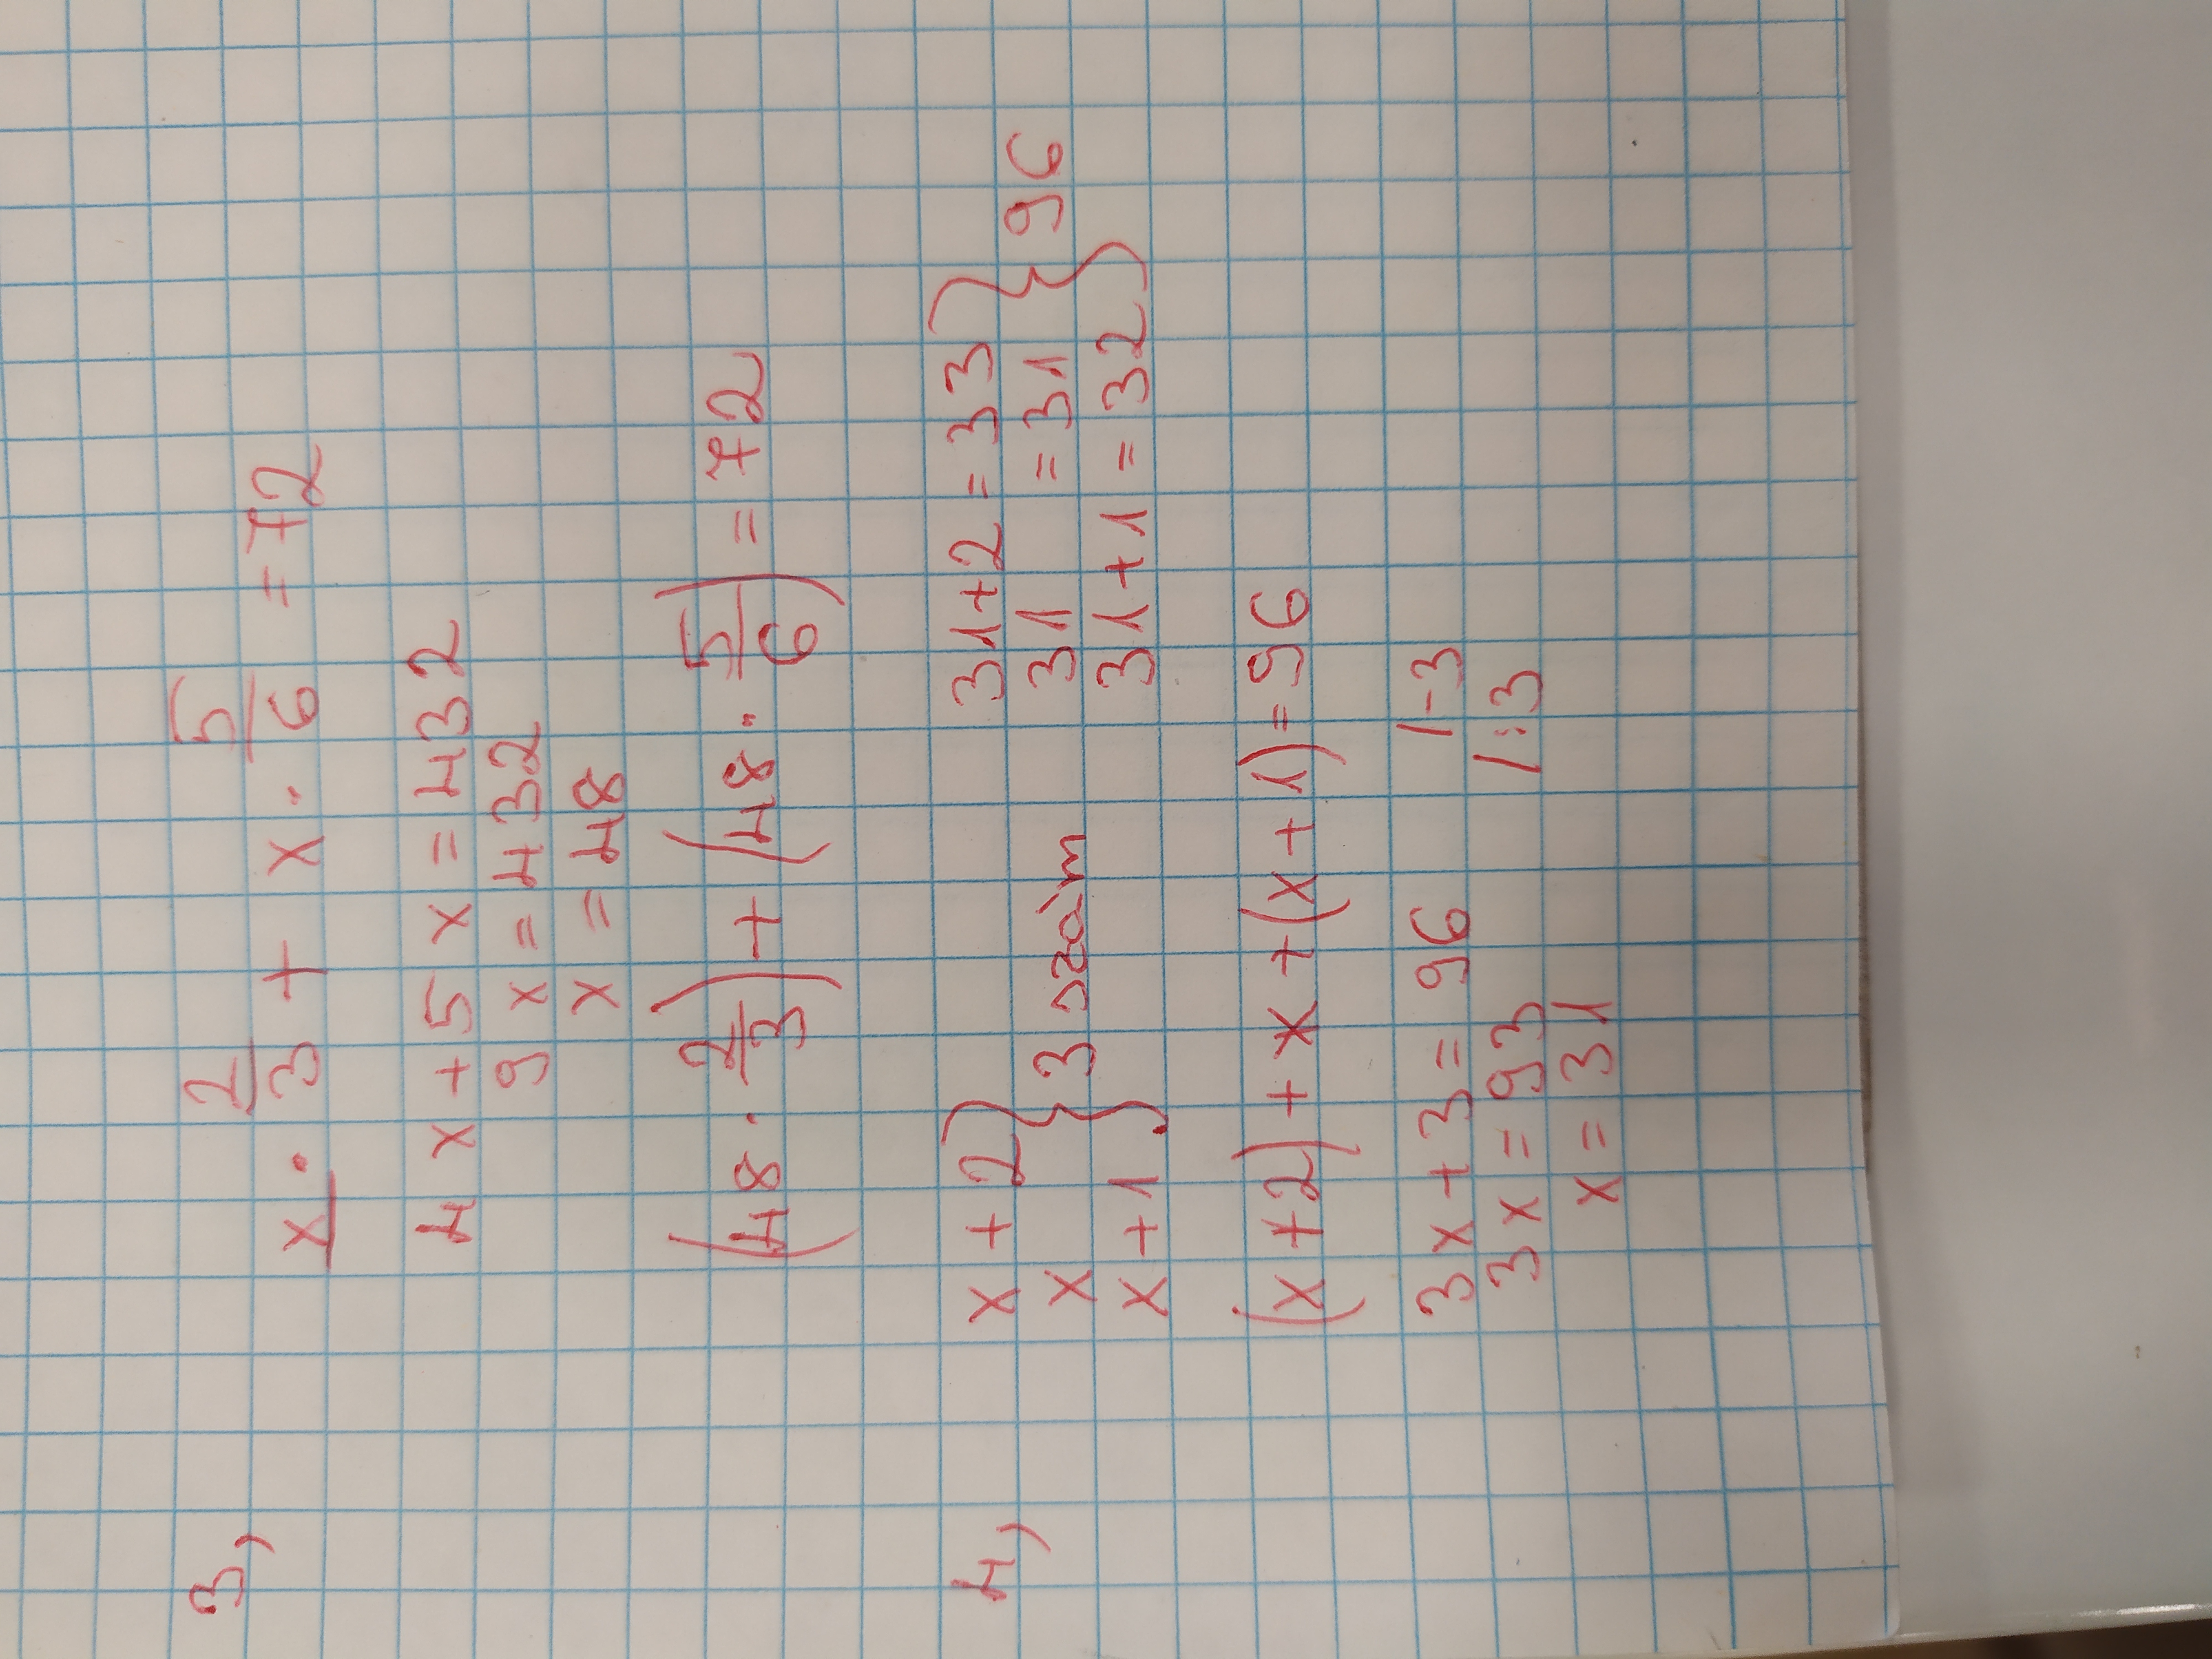 3, x · 2/3 + x · 5/6 = 72
4x + 5x = 432
9x = 432
x = 48
(48 · 2/3) + (48 · 5/6) = 72
4, x + 2 } 31+2 = 33 }
x } 3 szám 31 = 31 } 96
x + 1 } 31+1 = 32 }
(x+2) + x + (x+1) = 96
3x + 3 = 96 /-3
3x = 93 /:3
x = 31